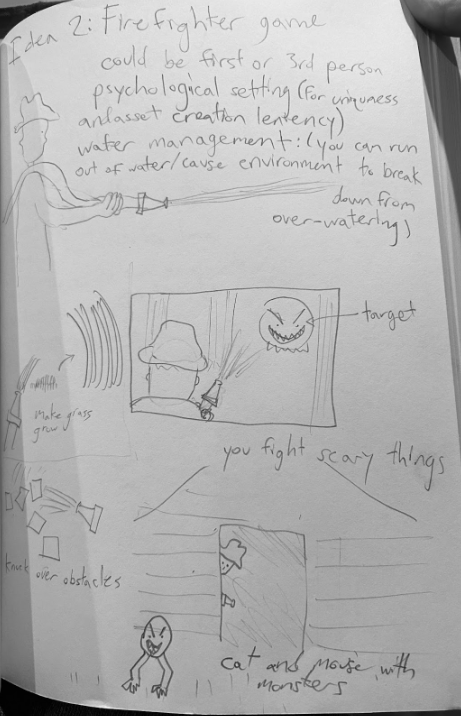 Idea 2: Firefighter game
could be first or 3rd person
psychological setting (for uniqueness
and asset creation leniency)
water management: (you can run
out of water/cause environment to break
down from
over-watering)
target
make grass
grow
you fight scary things
knock over obstacles
cat and mouse with
monsters